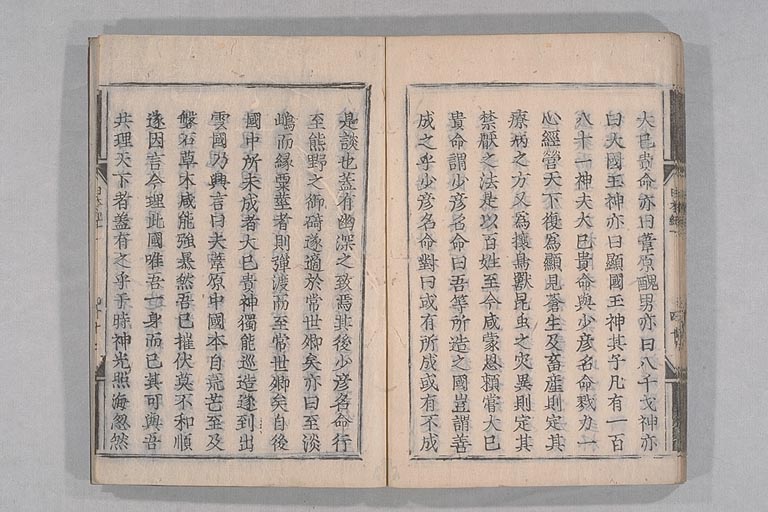 大己貴命亦曰葦原醜男亦曰八千戈神亦
曰大國玉神亦曰顯國玉神其子凡有一百
八十一神夫大己貴命與少彦名命戮力一
心經營天下復為顯見蒼生及畜產則定其
療病之方又為攘鳥獸昆虫之災異則定其
禁厭之法是以百姓至今咸蒙恩頼嘗大己
貴命謂少彦名命曰吾等所造之國豈謂善
成之乎少彦名命對曰或有所成或有不成
是談也蓋有幽深之致焉其後少彦名命行
至熊野之御碕遂適於常世鄉矣亦曰至淡
嶋而緣粟莖者則彈渡而至常世鄉矣自後
國中所未成者大己貴神獨能巡造遂到出
雲國乃興言曰夫葦原中國本自荒芒至及
磐石草木咸能強暴然吾已摧伏莫不和順
遂因言今理此國唯吾一身而已其可與吾
共理天下者蓋有之乎于時神光照海忽然